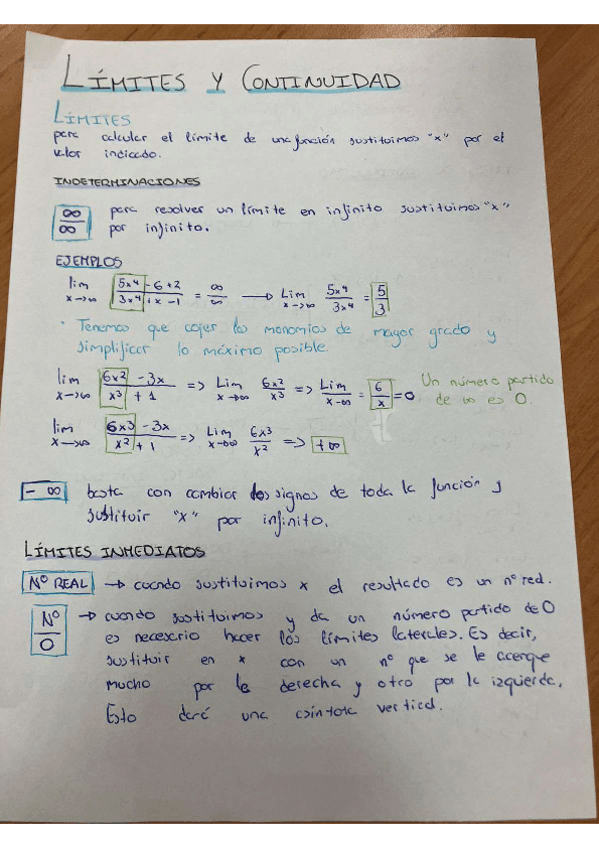 LÍMITES Y CONTINUIDAD
LÍMITES
para calcular el límite de una función sustituimos "x" por el
valor indicado.
INDETERMINACIONES
∞/∞ para resolver un límite en infinito sustituimos "x"
por infinito.
EJEMPLOS
lim x→∞ (5x⁴ - 6 + 2)/(3x⁴ + x - 1) = ∞/∞ → Lim x→∞ 5x⁴/3x⁴ = 5/3
· Tenemos que cojer los monomios de mayor grado y
simplificar lo máximo posible.
lim x→∞ (6x² - 3x)/(x³ + 1) => Lim x→∞ 6x²/x³ => Lim x→∞ = 6/x = 0 Un número partido
de ∞ es 0.
lim x→∞ (6x³ - 3x)/(x² + 1) => Lim x→∞ 6x³/x² => +∞
- ∞ basta con cambiar los signos de toda la función y
sustituir "x" por infinito.
LÍMITES INMEDIATOS
Nº REAL → cuando sustituimos x el resultado es un nº real.
Nº/0 → cuando sustituimos y da un número partido de 0
es necesario hacer los límites laterales. Es decir,
sustituir en x con un nº que se le acerque
mucho por la derecha y otro por la izquierda.
Esto dará una asíntota vertical.